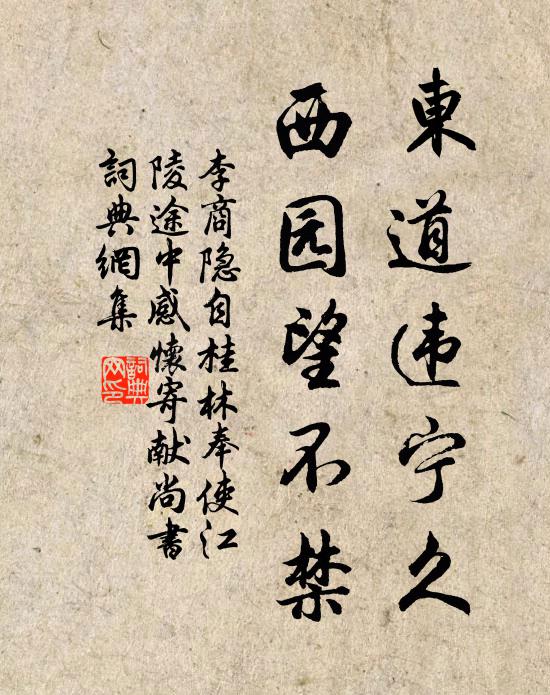 東道违宁久
西园望不禁
李商隐自桂林奉使江
陵途中感懷寄献尚書
詞典網集
詞典
网印